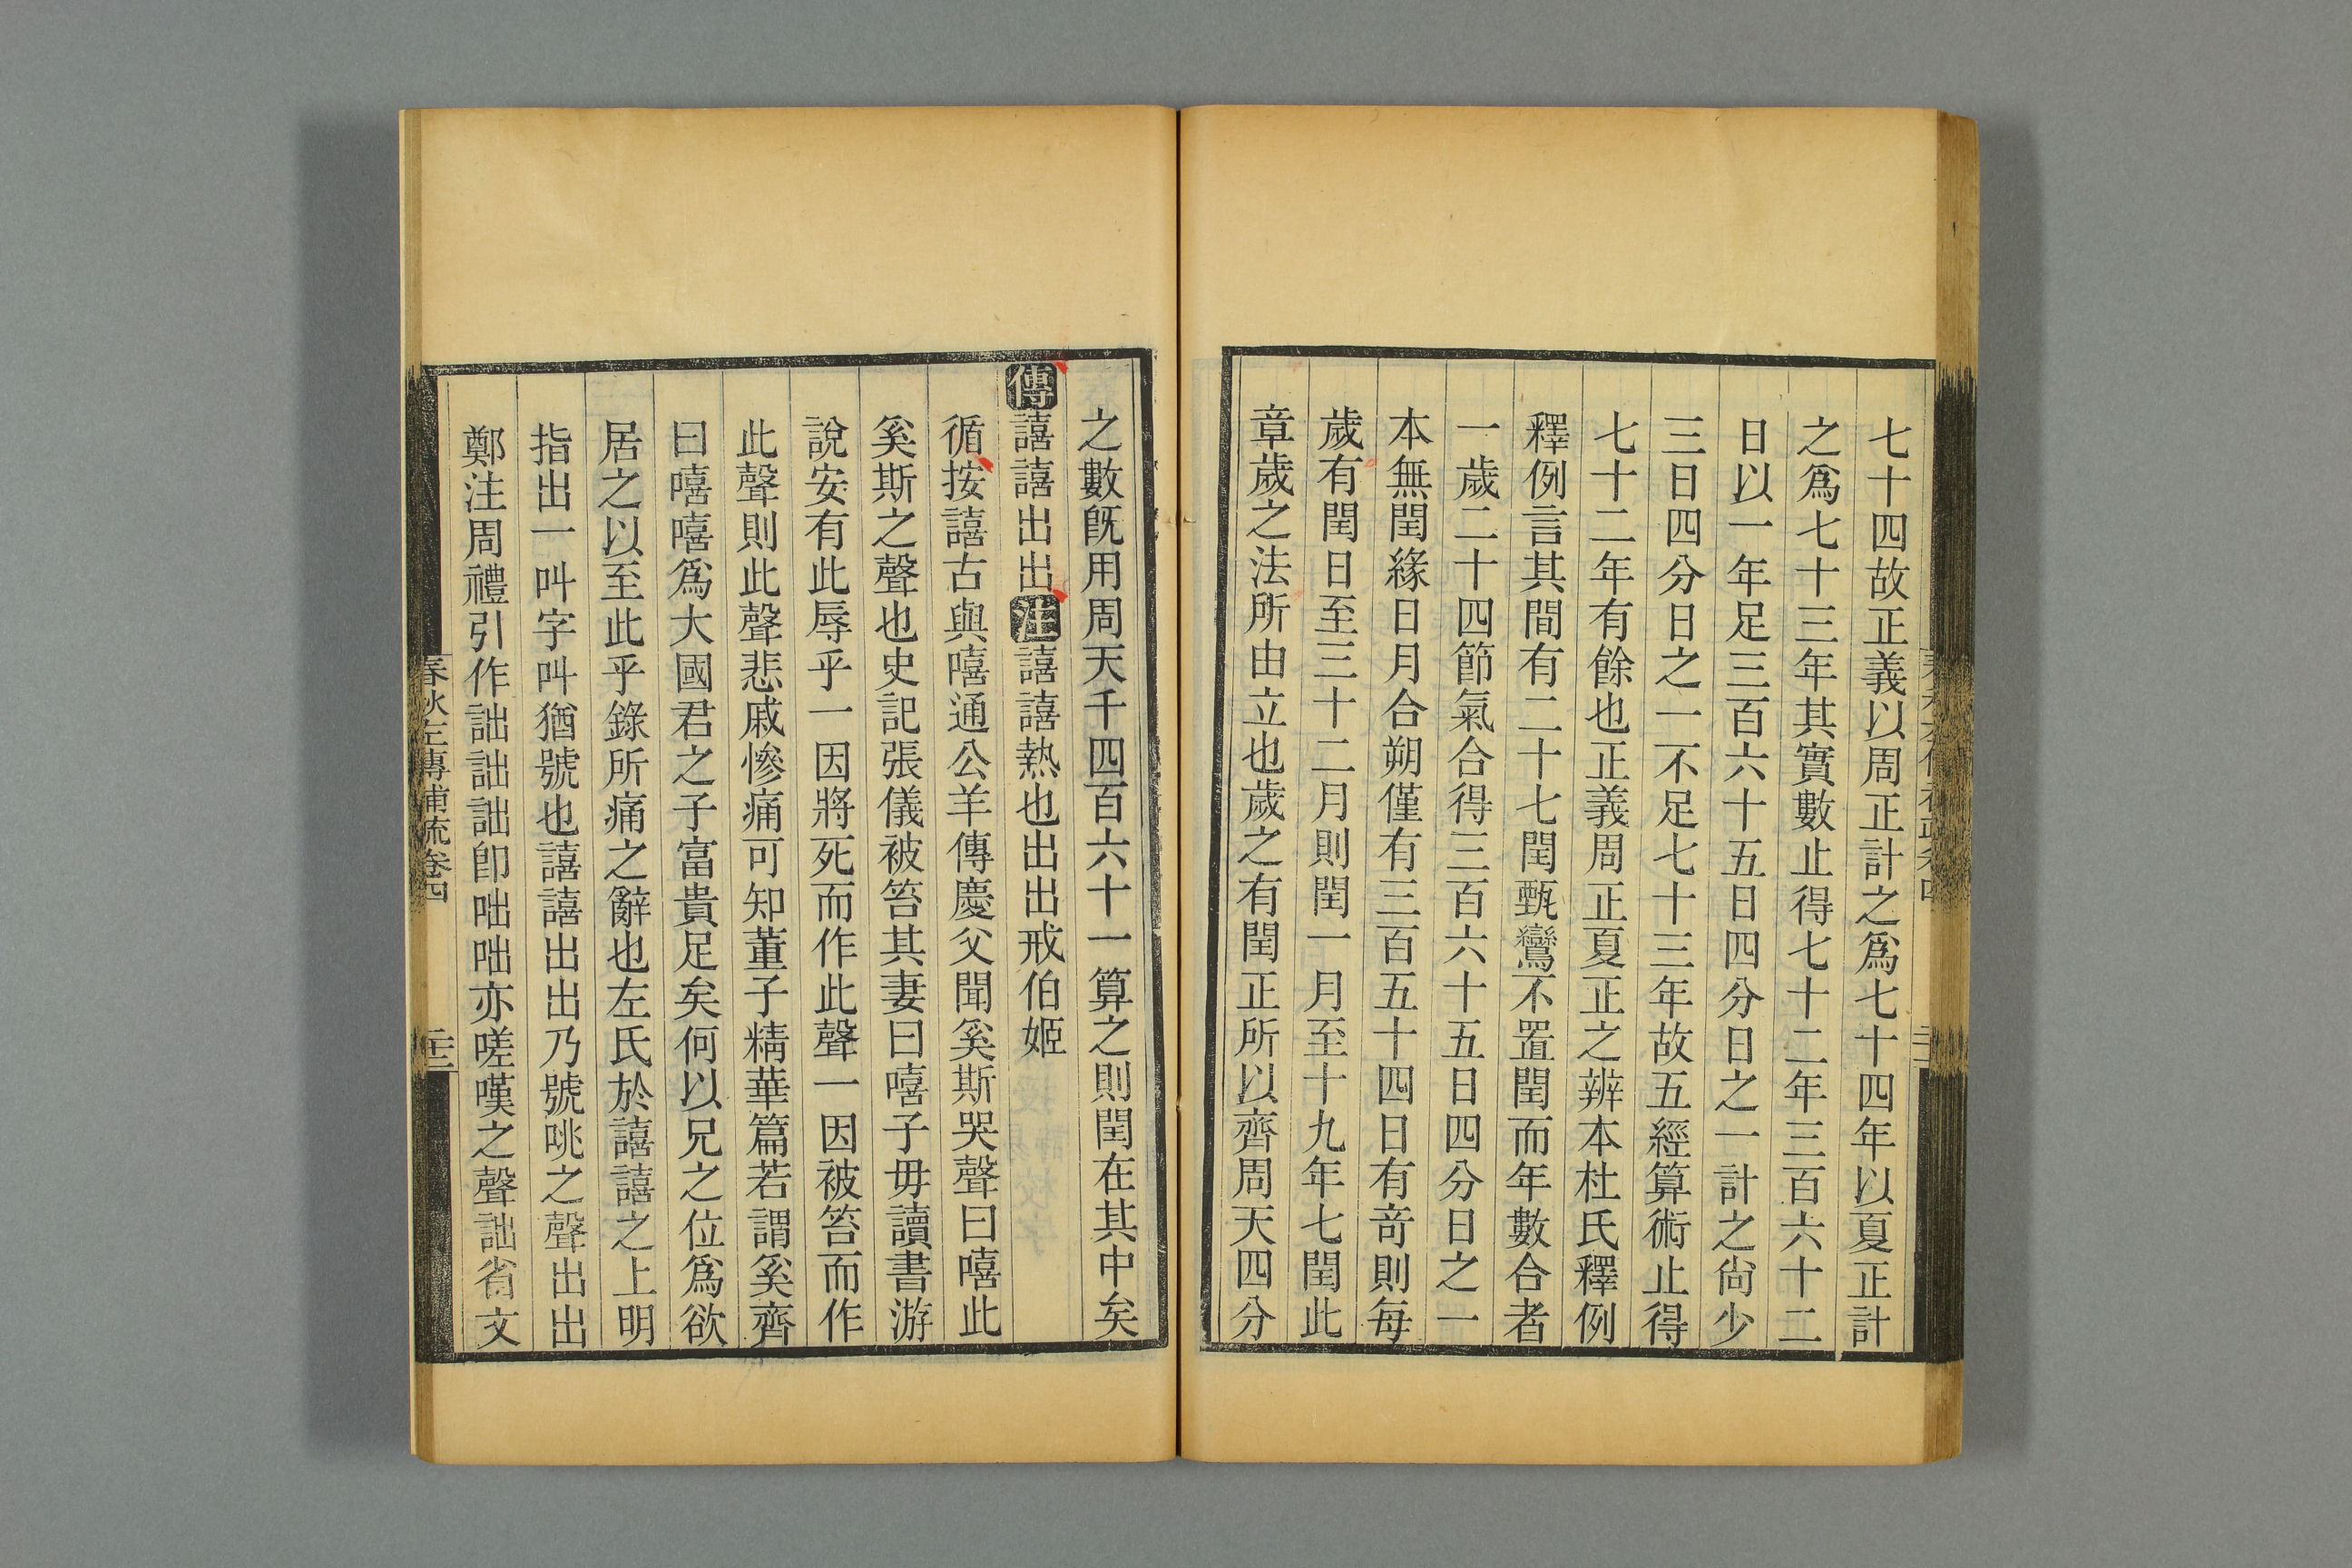 七十四故正義以周正計之爲七十四年以夏正計
之爲七十三年其實數止得七十二年三百六十二
日以一年足三百六十五日四分日之一計之尙少
三日四分日之一不足七十三年故五經算術止得
七十二年有餘也正義周正夏正之辨本杜氏釋例
釋例言其間有二十七閏甄鸞不置閏而年數合者
一歲二十四節氣合得三百六十五日四分日之一
本無閏緣日月合朔僅有三百五十四日有竒則每
歲有閏日至三十二月則閏一月至十九年七閏此
章歲之法所由立也歲之有閏正所以齊周天四分
之數旣用周天千四百六十一算之則閏在其中矣
傳譆譆出出注譆譆熱也出出戒伯姬
循按譆古與嘻通公羊傳慶父聞奚斯哭聲曰嘻此
奚斯之聲也史記張儀被笞其妻曰嘻子毋讀書游
說安有此辱乎一因將死而作此聲一因被笞而作
此聲則此聲悲戚慘痛可知董子精華篇若謂奚齊
曰嘻嘻爲大國君之子富貴足矣何以兄之位爲欲
居之以至此乎錄所痛之辭也左氏於譆譆之上明
指出一叫字叫猶號也譆譆出出乃號咷之聲出出
鄭注周禮引作詘詘詘卽咄咄亦嗟嘆之聲詘省文
春秋左傳補疏卷四
二十三